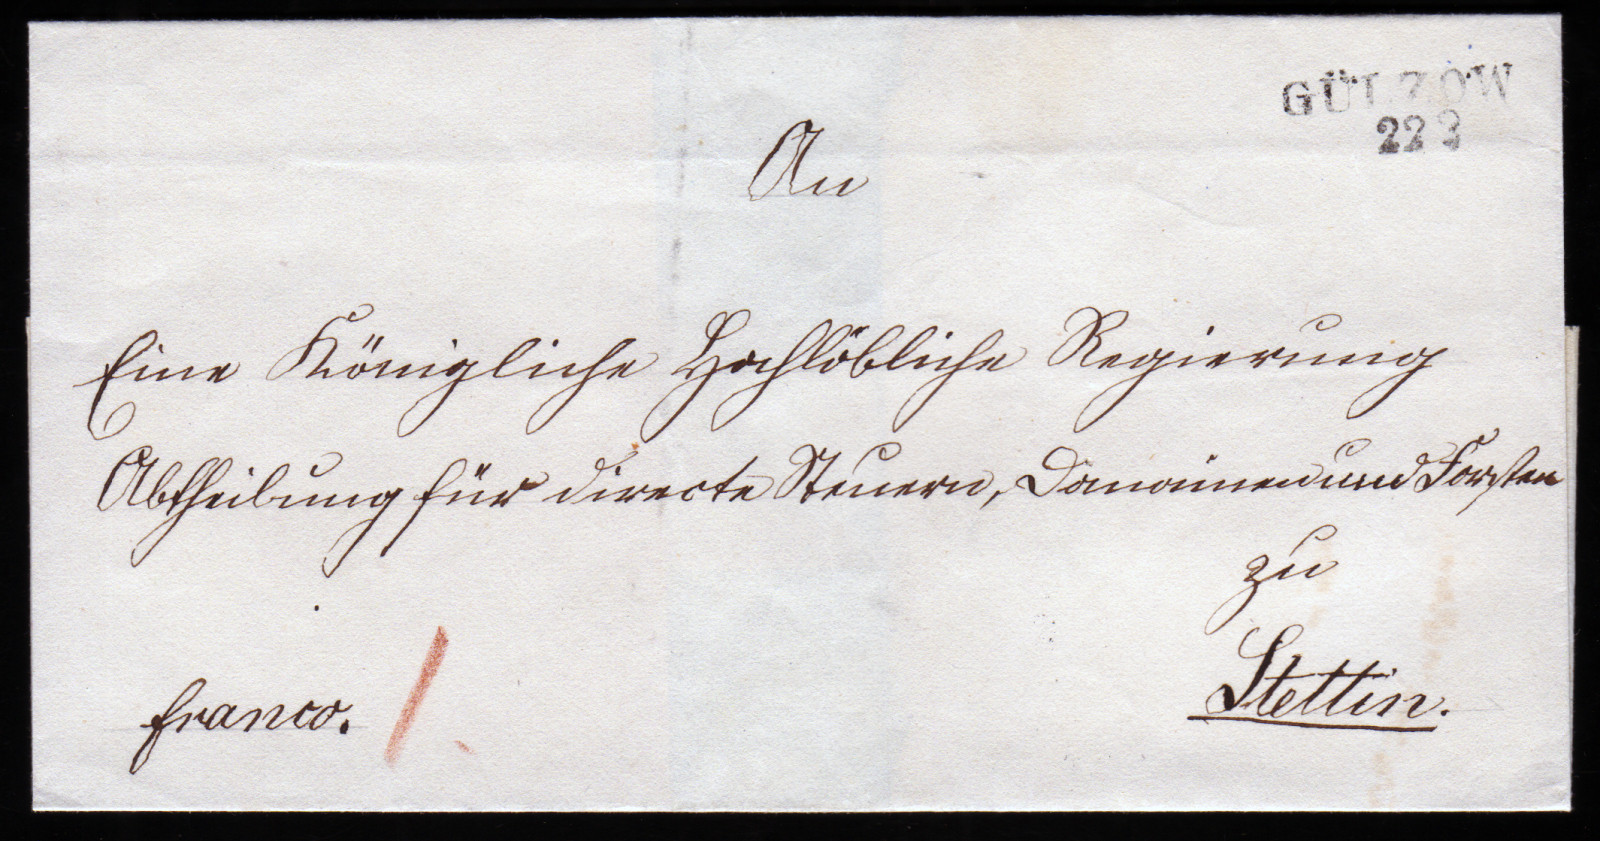 GÜLZOW
22 3
An
Eine Königliche Hochlöbliche Regierung
Abtheilung für directe Steuern, Domainen und Forsten
zu
Stettin.
franco.